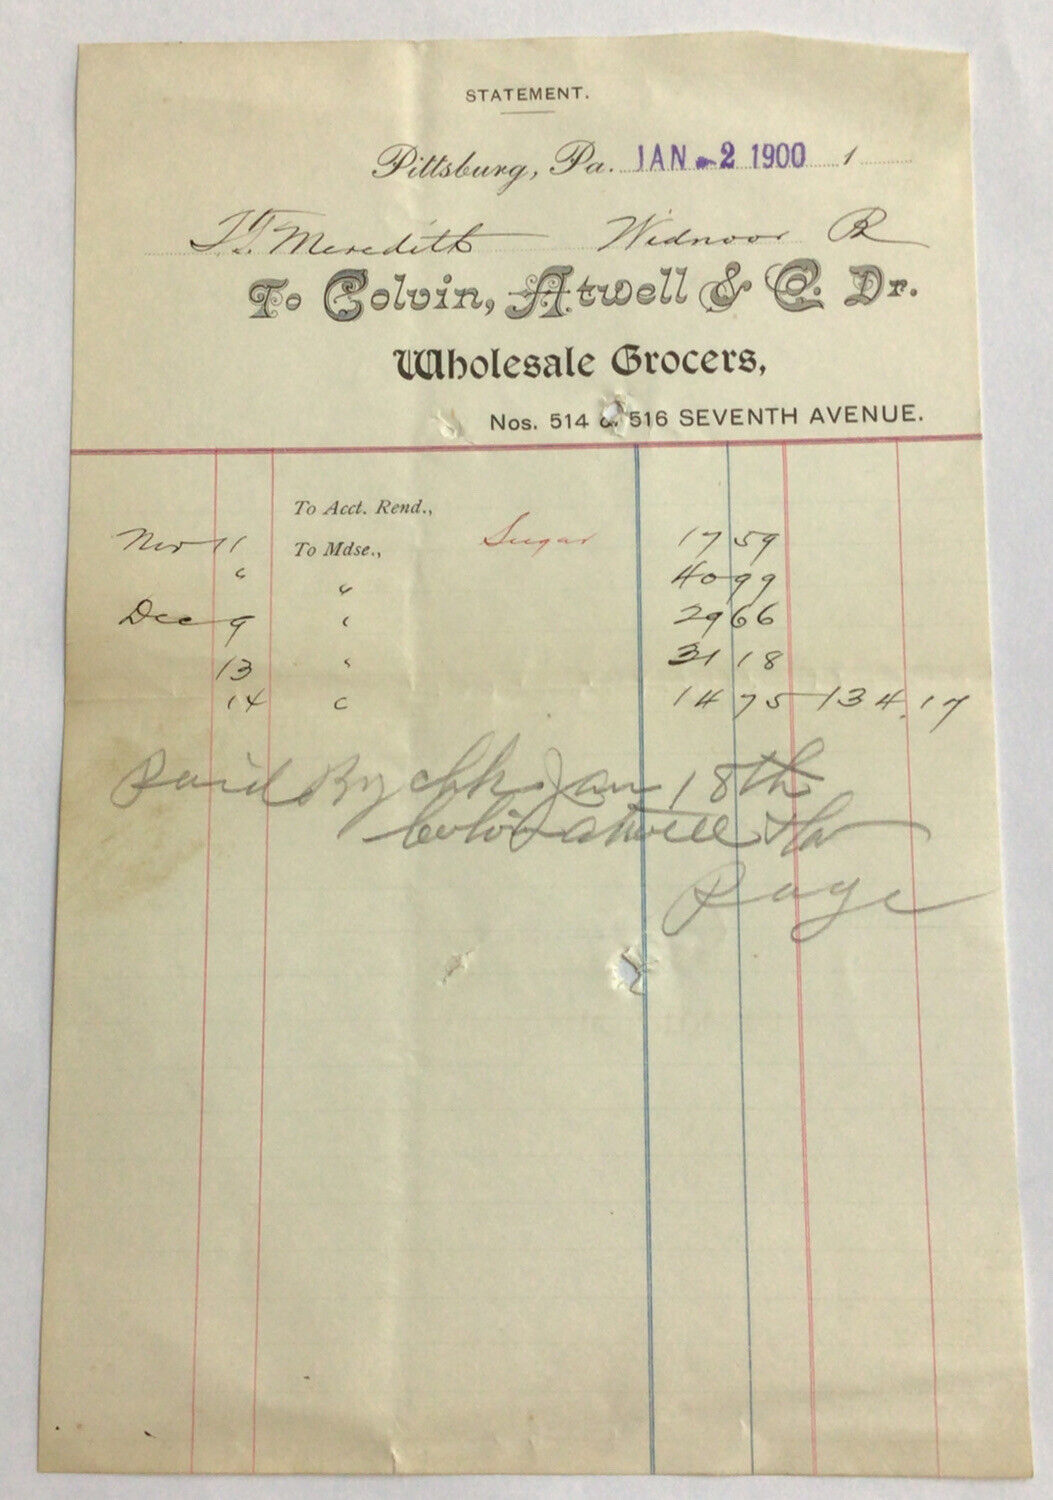 STATEMENT.
Pittsburg, Pa. JAN -2 1900 1
Meredith Widnoor Pa
To Colvin, Atwell & Co. Dr.
Wholesale Grocers,
Nos. 514 & 516 SEVENTH AVENUE.
To Acct. Rend.,
Nov 11 To Mdse., Sugar 17 59
" " 40 99
Dec 9 " 29 66
13 " 31 18
14 " 14 75 134.17
Paid By chk Jan 18th
Colvin Atwell & Co
Page